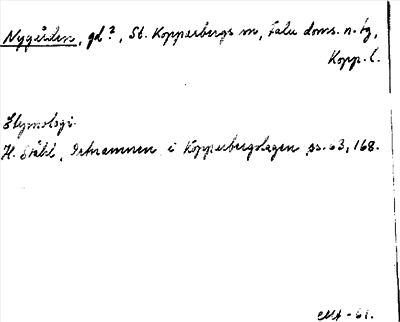 Nygården, gd?, St. Kopparbergs sn, Falu doms. n. tg,
Kopp. l.
Etymologi.
H. Ståhl, Ortnamnen i Kopparbergslagen ss. 63, 168.
-61.